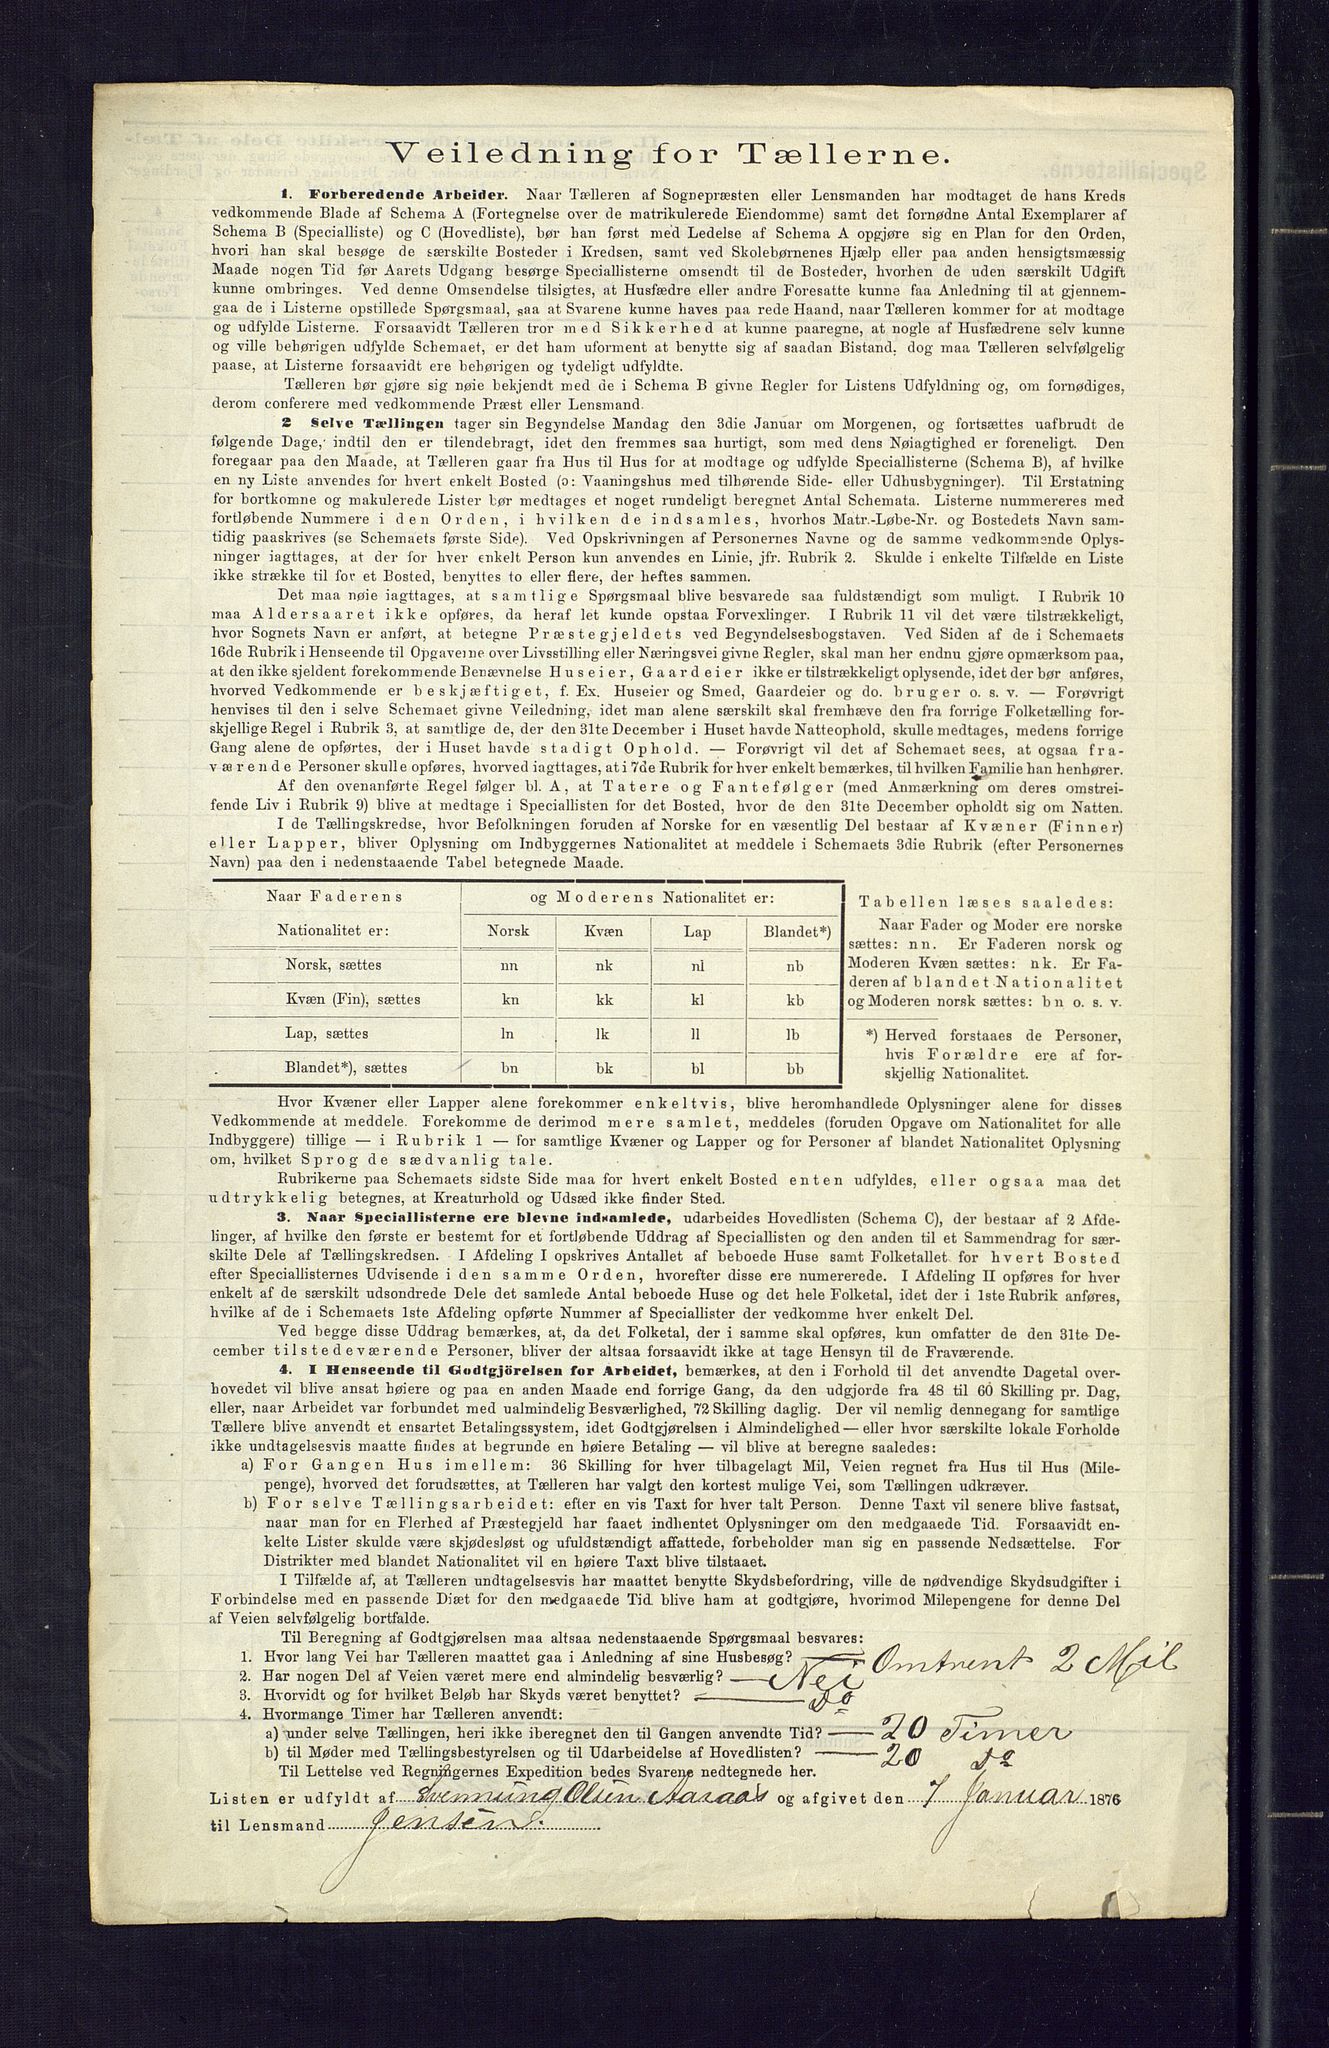 Veiledning for Tællerne.
1. Forberedende Arbeider. Naar Tælleren af Sognepræsten eller Lensmanden har modtaget de hans Kreds
vedkommende Blade af Schema A (Fortegnelse over de matrikulerede Eiendomme) samt det fornødne Antal Exemplarer af
Schema B (Specialliste) og C (Hovedliste), bør han først med Ledelse af Schema A opgjøre sig en Plan for den Orden,
hvori han skal besøge de særskilte Bosteder i Kredsen, samt ved Skolebørnenes Hjælp eller paa anden hensigtsmæssig
Maade nogen Tid før Aarets Udgang besørge Speciallisterne omsendt til de Bosteder, hvorhen de uden særskilt Udgift
kunne ombringes. Ved denne Omsendelse tilsigtes, at Husfædre eller andre Foresatte kunne faa Anledning til at gjennem-
gaa de i Listerne opstillede Spørgsmaal, saa at Svarene kunne haves paa rede Haand, naar Tælleren kommer for at modtage
og udfylde Listerne. Forsaavidt Tælleren tror med Sikkerhed at kunne paaregne, at nogle af Husfædrene selv kunne
og ville behørigen udfylde Schemaet, er det ham uforment at benytte sig af saadan Bistand, dog maa Tælleren selvfølgelig
paase, at Listerne forsaavidt ere behørigen og tydeligt udfyldte.
Tælleren bør gjøre sig nøie bekjendt med de i Schema B givne Regler for Listens Udfyldning og, om fornødiges,
derom conferere med vedkommende Præst eller Lensmand.
2 Selve Tællingen tager sin Begyndelse Mandag den 3die Januar om Morgenen, og fortsættes uafbrudt de
følgende Dage, indtil den er tilendebragt, idet den fremmes saa hurtigt, som med dens Nøiagtighed er foreneligt. Den
foregaar paa den Maade, at Tælleren gaar fra Hus til Hus for at modtage og udfylde Speciallisterne (Schema B), af hvilke
en ny Liste anvendes for hvert enkelt Bosted (ɔ: Vaaningshus med tilhørende Side- eller Udhusbygninger). Til Erstatning
for bortkomne og makulerede Lister bør medtages et noget rundeligt beregnet Antal Schemata. Listerne nummereres med
fortløbende Nummere i den Orden, i hvilken de indsamles, hvorhos Matr.-Løbe-Nr. og Bostedets Navn sam-
tidig paaskrives (se Schemaets første Side). Ved Opskrivningen af Personernes Navne og de samme vedkommende Oplys-
ninger iagttages, at der for hver enkelt Person kun anvendes en Linie, jfr. Rubrik 2. Skulde i enkelte Tilfælde en Liste
ikke strække til for et Bosted, benyttes to eller flere, der heftes sammen.
Det maa nøie iagttages, at samtlige Spørgsmaal blive besvarede saa fuldstændigt som muligt. I Rubrik 10
maa Aldersaaret ikke opføres, da heraf let kunde opstaa Forvexlinger. I Rubrik 11 vil det være tilstrækkeligt,
hvor Sognets Navn er anført, at betegne Præstegjeldets ved Begyndelsesbogstaven. Ved Siden af de i Schemaets
16de Rubrik i Henseende til Opgaverne over Livsstilling eller Næringsvei givne Regler, skal man her endnu gjøre opmærksom paa,
at den ikke sjeldent forekommende Benævnelse Huseier, Gaardeier ikke er tilstrækkeligt oplysende, idet der bør anføres,
hvorved Vedkommende er beskjæftiget, f. Ex. Huseier og Smed, Gaardeier og do. bruger o. s. v. — Forøvrigt
henvises til den i selve Schemaet givne Veiledning, idet man alene særskilt skal fremhæve den fra forrige Folketælling for-
skjellige Regel i Rubrik 3, at samtlige de, der den 31te December i Huset havde Natteophold, skulle medtages, medens forrige
Gang alene de opførtes, der i Huset havde stadigt Ophold. — Forøvrigt vil det af Schemaet sees, at ogsaa fra-
værende Personer skulle opføres, hvorved iagttages, at i 7de Rubrik for hver enkelt bemærkes, til hvilken Familie han henhører.
Af den ovenanførte Regel følger bl. A, at Tatere og Fantefølger (med Anmærkning om deres omstrei-
fende Liv i Rubrik 9) blive at medtage i Speciallisten for det Bosted, hvor de den 31te December opholdt sig om Natten.
I de Tællingskredse, hvor Befolkningen foruden af Norske for en væsentlig Del bestaar af Kvæner (Finner)
eller Lapper, bliver Oplysning om Indbyggernes Nationalitet at meddele i Schemaets 3die Rubrik (efter Personernes
Navn) paa den i nedenstaaende Tabel betegnede Maade.
Naar Faderens og Moderens Nationalitet er:
Nationalitet er: Norsk Kvæn Lap Blandet*)
Norsk, sættes nn nk nl nb
Kvæn (Fin), sættes kn kk kl kb
Lap, sættes ln lk ll lb
Blandet*), sættes bn bk bl bb
Tabellen læses saaledes:
Naar Fader og Moder ere norske
sættes: nn. Er Faderen norsk og
Moderen Kvæn sættes: nk. Er Fa-
deren af blandet Nationalitet
og Moderen norsk sættes: bn o. s. v.
*) Herved forstaaes de Personer,
hvis Forældre ere af for-
skjellig Nationalitet.
Hvor Kvæner eller Lapper alene forekommer enkeltvis, blive heromhandlede Oplysninger alene for disses
Vedkommende at meddele. Forekomme de derimod mere samlet, meddeles (foruden Opgave om Nationalitet for alle
Indbyggere) tillige — i Rubrik 1 — for samtlige Kvæner og Lapper og for Personer af blandet Nationalitet Oplysning
om, hvilket Sprog de sædvanlig tale.
Rubrikerne paa Schemaets sidste Side maa for hvert enkelt Bosted enten udfyldes, eller ogsaa maa det
udtrykkelig betegnes, at Kreaturhold og Udsæd ikke finder Sted.
3. Naar Speciallisterne ere blevne indsamlede, udarbeides Hovedlisten (Schema C), der bestaar af 2 Afde-
linger, af hvilke den første er bestemt for et fortløbende Uddrag af Speciallisten og den anden til et Sammendrag for sær-
skilte Dele af Tællingskredsen. I Afdeling I opskrives Antallet af beboede Huse samt Folketallet for hvert Bosted
efter Speciallisternes Udvisende i den samme Orden, hvorefter disse ere numererede. I Afdeling II opføres for hver
enkelt af de særskilt udsondrede Dele det samlede Antal beboede Huse og det hele Folketal, idet der i 1ste Rubrik anføres,
hvilke af de i Schemaets 1ste Afdeling opførte Nummer af Speciallister der vedkomme hver enkelt Del.
Ved begge disse Uddrag bemærkes, at, da det Folketal, der i samme skal opføres, kun omfatter de den 31te De-
cember tilstedeværende Personer, bliver der altsaa forsaavidt ikke at tage Hensyn til de Fraværende.
4. I Henseende til Godtgjörelsen for Arbeidet, bemærkes, at den i Forhold til det anvendte Dagetal over-
hovedet vil blive ansat høiere og paa en anden Maade end forrige Gang, da den udgjorde fra 48 til 60 Skilling pr. Dag,
eller, naar Arbeidet var forbundet med ualmindelig Besværlighed, 72 Skilling daglig. Der vil nemlig dennegang for samtlige
Tællere blive anvendt et ensartet Betalingssystem, idet Godtgjørelsen i Almindelighed — eller hvor særskilte lokale Forholde
ikke undtagelsesvis maatte findes at begrunde en høiere Betaling — vil blive at beregne saaledes:
a) For Gangen Hus imellem: 36 Skilling for hver tilbagelagt Mil, Veien regnet fra Hus til Hus (Mile-
penge), hvorved det forudsættes, at Tælleren har valgt den kortest mulige Vei, som Tællingen udkræver.
b) For selve Tællingsarbeidet: efter en vis Taxt for hver talt Person. Denne Taxt vil senere blive fastsat,
naar man for en Flerhed af Præstegjeld har faaet indhentet Oplysninger om den medgaaede Tid. Forsaavidt en-
kelte Lister skulde være skjødesløst og ufuldstændigt affattede, forbeholder man sig en passende Nedsættelse. For
Distrikter med blandet Nationalitet vil en høiere Taxt blive tilstaaet.
I Tilfælde af, at Tælleren undtagelsesvis har maattet benytte Skydsbefordring, ville de nødvendige Skydsudgifter i
Forbindelse med en passende Diæt for den medgaaede Tid blive ham at godtgjøre, hvorimod Milepengene for denne Del
af Veien selvfølgelig bortfalde.
Til Beregning af Godtgjørelsen maa altsaa nedenstaaende Spørgsmaal besvares:
1. Hvor lang Vei har Tælleren maattet gaa i Anledning af sine Husbesøg? Omtrent 2 Mil
2. Har nogen Del af Veien været mere end almindelig besværlig? Nei
3. Hvorvidt og for hvilket Beløb har Skyds været benyttet? Do
4. Hvormange Timer har Tælleren anvendt:
a) under selve Tællingen, heri ikke iberegnet den til Gangen anvendte Tid? 20 Timer
b) til Møder med Tællingsbestyrelsen og til Udarbeidelse af Hovedlisten? 20 Do
Til Lettelse ved Regningernes Expedition bedes Svarene nedtegnede her.
Listen er udfyldt af Svennung Olsen Aaraas og afgivet den 7 Januar 1876
til Lensmand Jensen.